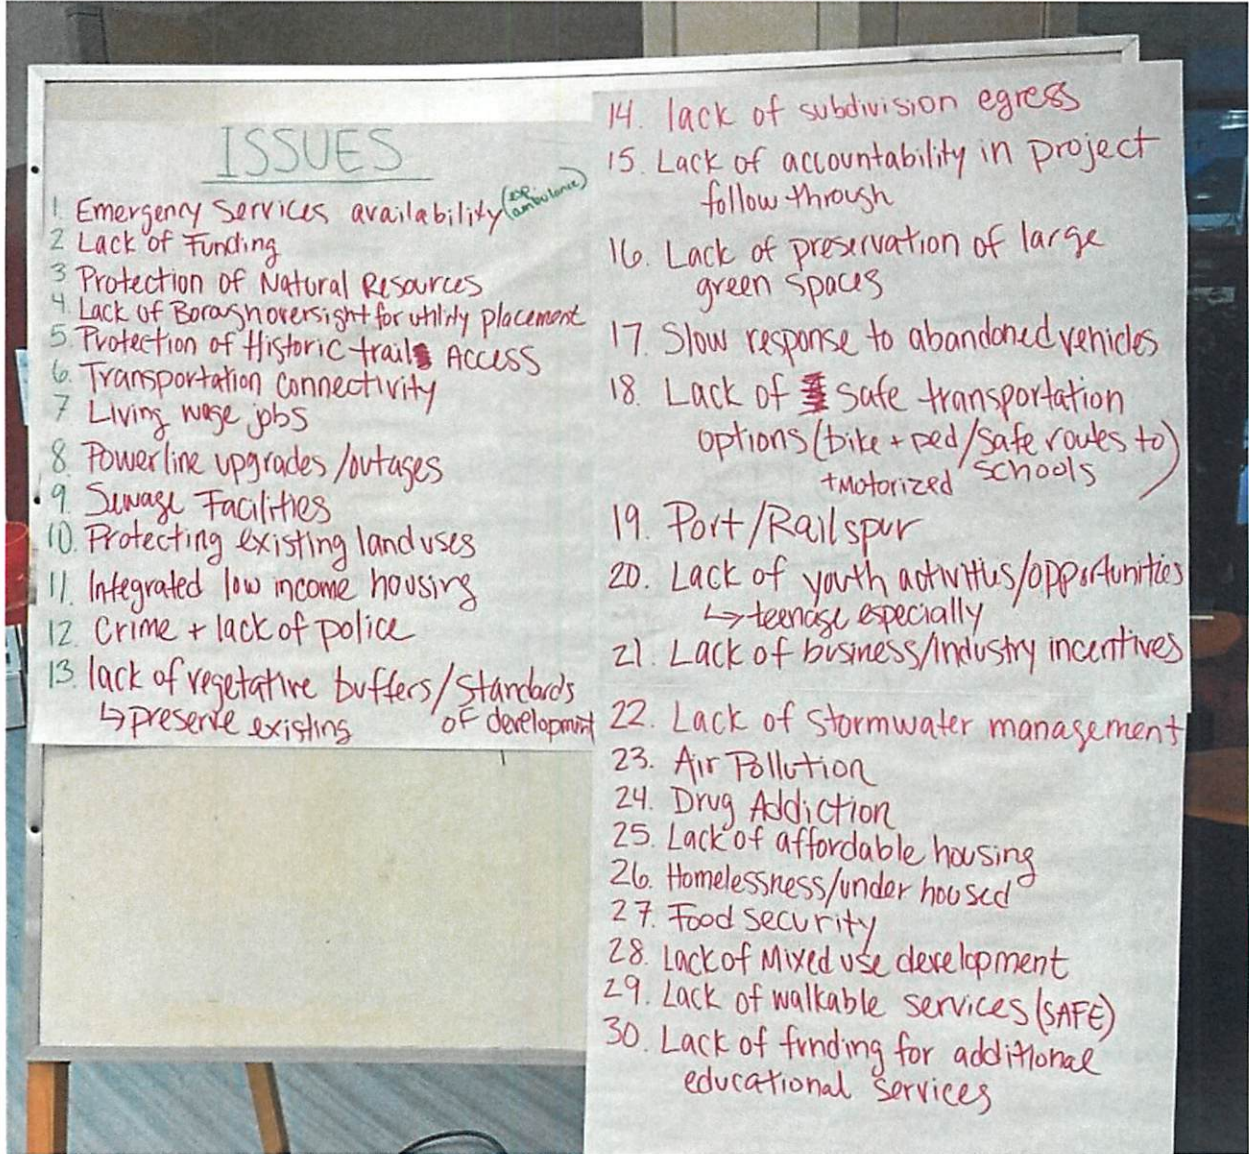 ISSUES
1. Emergency Services availability (esp. ambulance)
2 Lack of Funding
3 Protection of Natural Resources
4. Lack of Borough oversight for utility placement
5. Protection of Historic trail Access
6. Transportation Connectivity
7 Living wage jobs
8 Powerline upgrades/outages
9. Sewage Facilities
10. Protecting existing land uses
11. Integrated low income housing
12. Crime + lack of police
13. lack of vegetative buffers/Standards
↳ preserve existing of development
14. lack of subdivision egress
15. Lack of accountability in project
follow through
16. Lack of preservation of large
green spaces
17. Slow response to abandoned vehicles
18. Lack of safe transportation
options (bike + ped/safe routes to)
+Motorized schools
19. Port/Rail spur
20. Lack of youth activities/opportunities
↳ teenage especially
21. Lack of business/industry incentives
22. Lack of stormwater management
23. Air Pollution
24. Drug Addiction
25. Lack of affordable housing
26. Homelessness/under housed
27. Food security
28. Lack of Mixed use development
29. Lack of walkable services (SAFE)
30. Lack of funding for additional
educational services